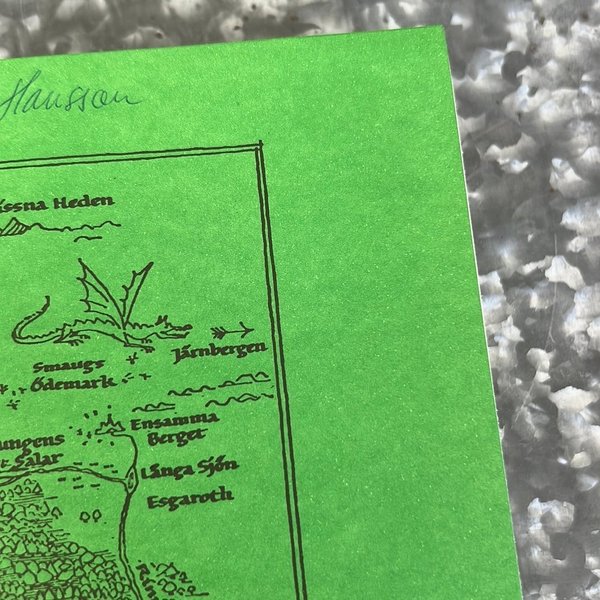 Hansson
Heden
Smaugs
Ödemark
Järnbergen
Ensamma
Berget
Salar
Långa Sjön
Esgaroth